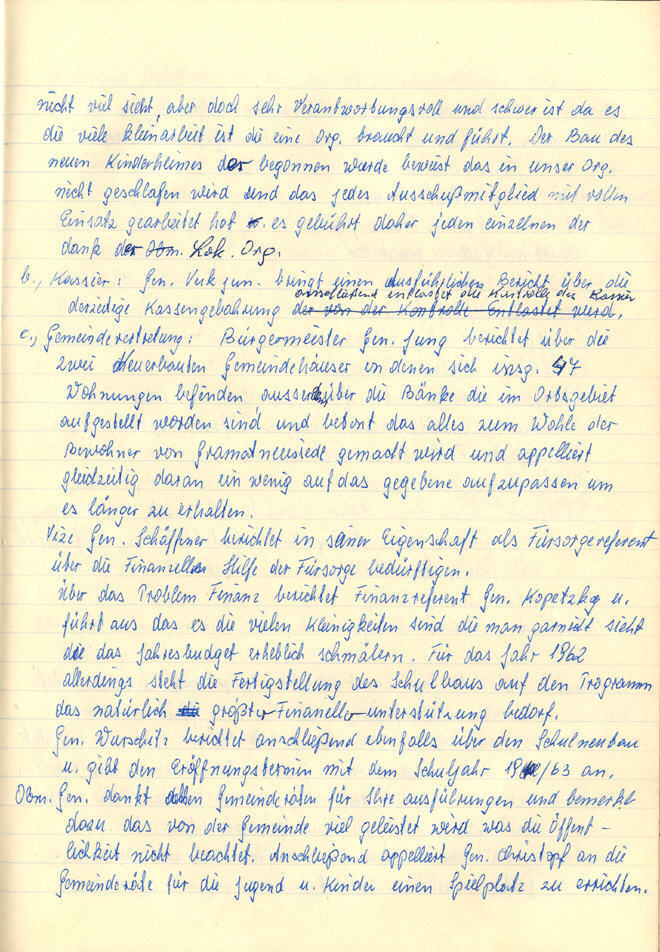 nicht viel sieht, aber doch sehr Verantworbungsvoll und schwer ist da es
die viele kleinarbeit ist die eine Org. braucht und führt. Der Bau des
neuen Kinderheimes der begonnen wurde beweist das in unser Org.
nicht geschlafen wird und das jedes Ausschußmitglied mit vollen
Einsatz gearbeitet hat es gebührt daher jeden einzelnen der
danke der Obm. Lok. Org.
b., Kassier: Gen. Vuk jun. bringt einen Ausführlichen Bericht über die
anschließend entlastet die Kontrolle den Kassier
derzeitige Kassengebahrung der von der Kontrolle Entlastet wird.
c., Gemeindevertretung: Bürgermeister Gen. Jung berichtet über die
zwei Neuerbauten Gemeindehäuser in denen sich insg. 47
Wohnungen befinden ausserdem über die Bänke die im Ortsgebiet
aufgestellt worden sind und betont das alles zum Wohle der
Bewohner von Gramatneusiede gemacht wird und appelliert
gleichzeitig daran ein wenig auf das gegebene aufzupassen um
es länger zu erhalten.
Vize Gen. Schäffner berichtet in seiner Eigenschaft als Fürsorgereferent
über die Finanzellen Hilfe der Fürsorge bedürftigen.
über das Problem Finanz berichtet Finanzreferent Gen. Kopetzky u.
führt aus das es die vielen Kleinigkeiten sind die man garnicht sieht
die das Jahresbudget erheblich schmälern. Für das Jahr 1962
allerdings steht die Fertigstellung des Schulbaus auf den Programm
das natürlich die größter Finaneller unterstützung bedarf.
Gen. Wurschitz berichtet anschließend ebenfalls über den Schulneubau
u. gibt den Eröffnungstermin mit dem Schuljahr 1962/63 an.
Obm. Gen. dankt den Gemeinderäten für Ihre ausführungen und bemerkt
dazu das von der Gemeinde viel geleistet wird was die Öffent-
lichkeit nicht beachtet. Anschließend appelliert Gen. Christopf an die
Gemeinderäte für die Jugend u. Kinder einen Spielplatz zu errichten.